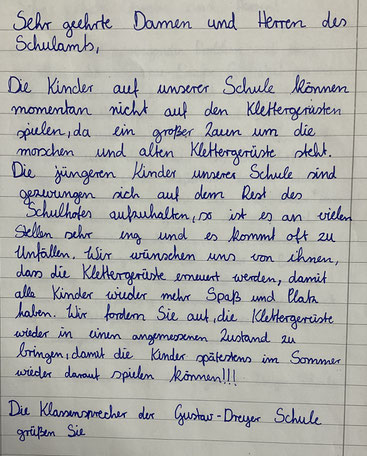 Sehr geehrte Damen und Herren des
Schulamts,
Die Kinder auf unserer Schule können
momentan nicht auf den Klettergerüsten
spielen, da ein großer Zaun um die
morschen und alten Klettergerüste steht.
Die jüngeren Kinder unserer Schule sind
gezwungen sich auf dem Rest des
Schulhofes aufzuhalten, so ist es an vielen
Stellen sehr eng und es kommt oft zu
Unfällen. Wir wünschen uns von ihnen,
dass die Klettergerüste erneuert werden, damit
alle Kinder wieder mehr Spaß und Platz
haben. Wir fordern Sie auf, die Klettergerüste
wieder in einen angemessenen Zustand zu
bringen, damit die Kinder spätestens im Sommer
wieder darauf spielen können!!!
Die Klassensprecher der Gustav-Dreyer Schule
grüßen Sie